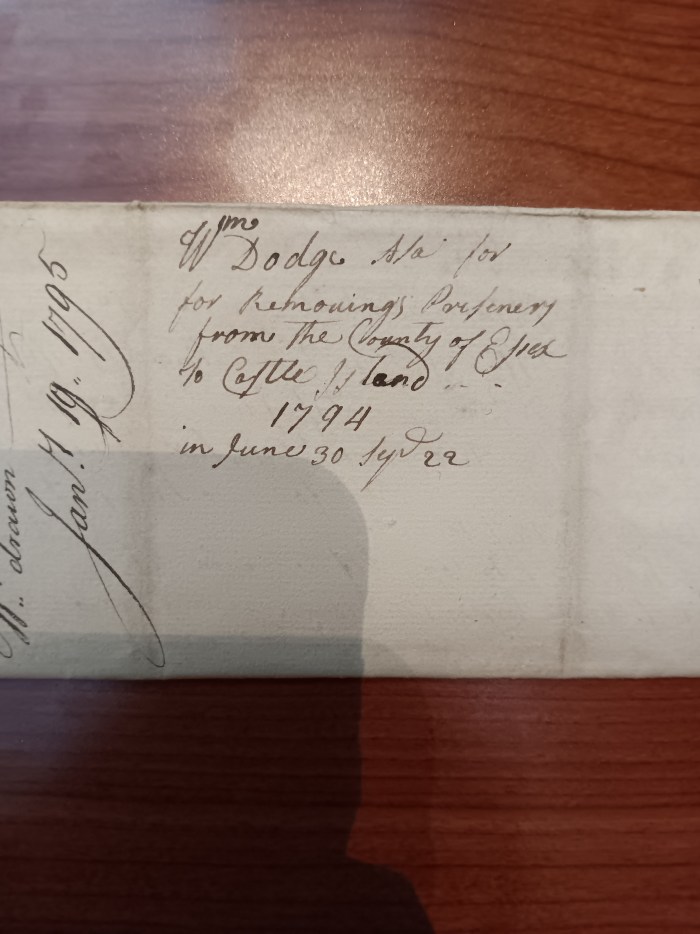 Wm Dodge for
for Removings Prisenery
from the County of Essex
to Castle Island
1794
in June 30 22
Wt. drawn
Jany 19,, 1795